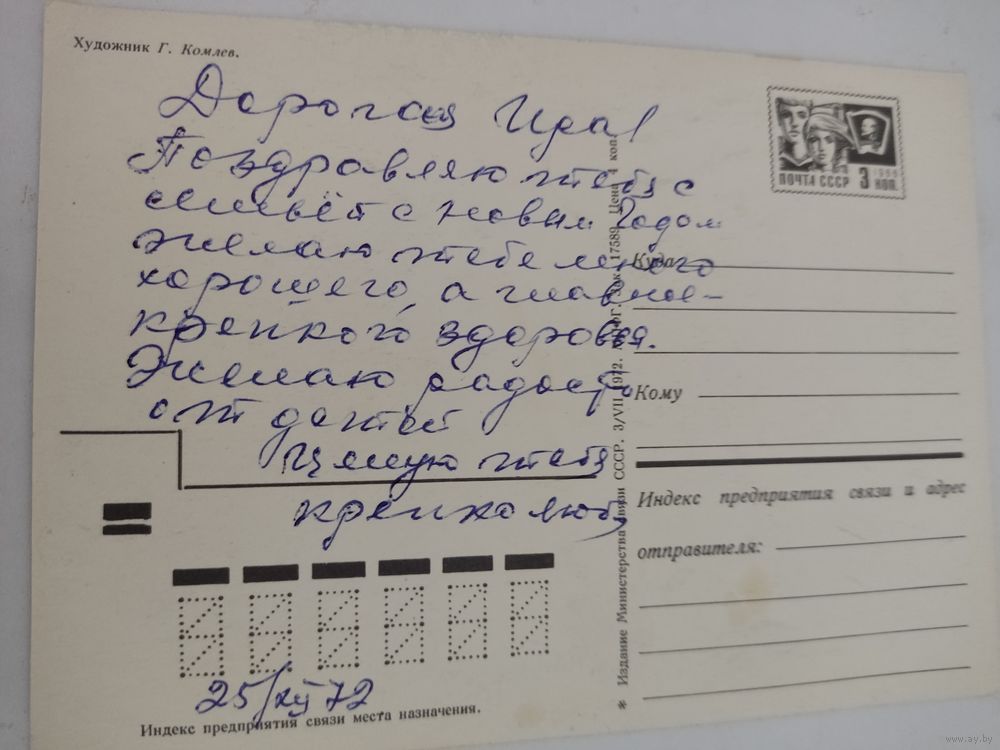 Художник Г. Комлев.
Дорогая Ида!
Поздравляю тебя с
семьёй с Новым Годом
желаю тебе много
хорошего, а главное —
крепкого здоровья.
Желаю радость
от детей
Целую тебя
крепко люб
25/XII 72
Индекс предприятия связи места назначения.
ПОЧТА СССР 3 КОП.
1966
Куда
Кому
Индекс предприятия связи и адрес
отправителя:
* Издание Министерства связи СССР. 3/VII 1972. Зак. 17589. Цена коп.
www.ay.by